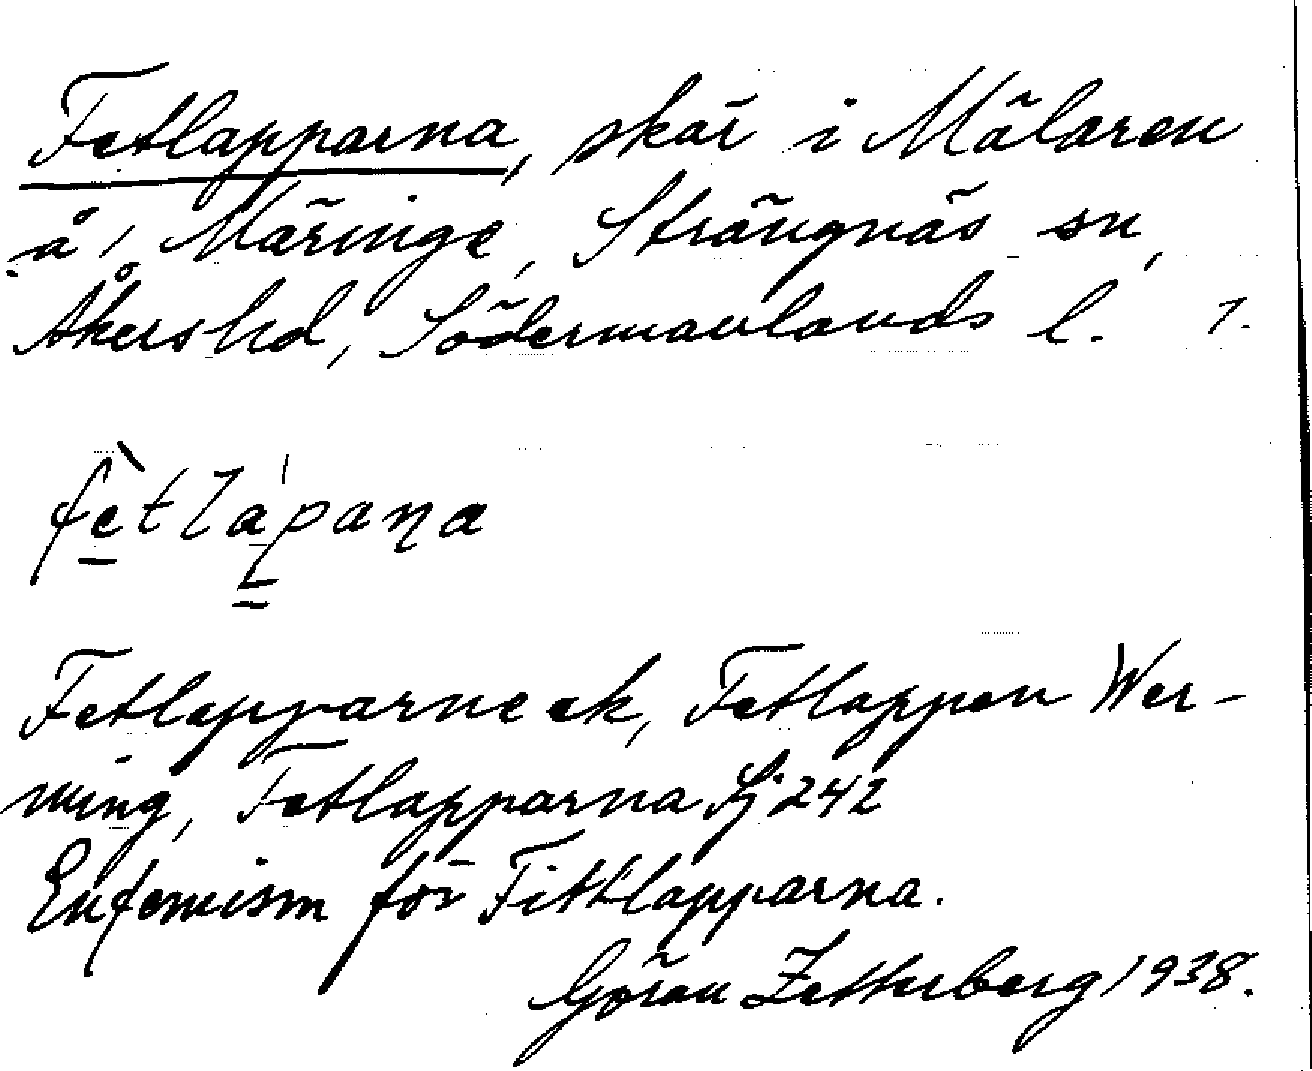 Fetlapparna, skär i Mälaren
å, Märinge, Strängnäs sn,
Åkers hd, Södermanlands l. 7.
fètlápaṇa
Fetlapparne ek, Fetlappen Wer-
ming, Fetlapparna Sj 242
Eufemism för Fittlapparna.
Göran Zetterberg 1938.